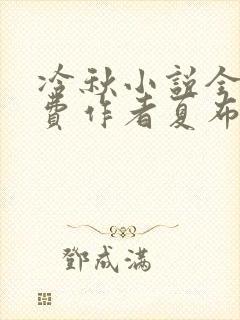 冷秋小説全
費作者夏布
鄧成滿